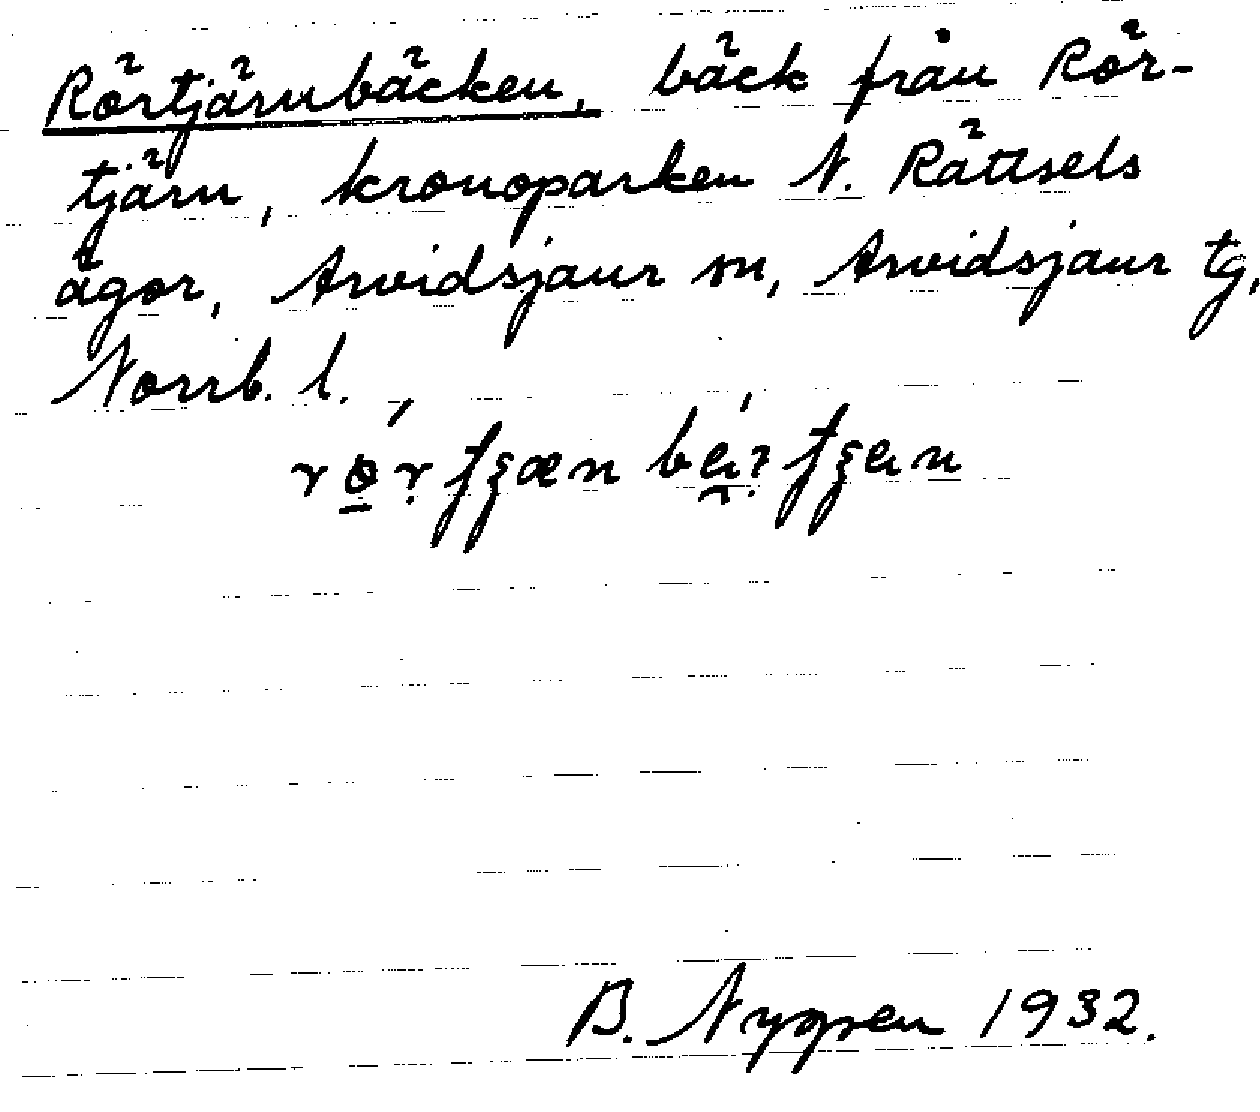 Rörtjärnbäcken, bäck från Rör-
tjärn, kronoparken N. Rättsels
ägor, Arvidsjaur sn, Arvidsjaur tg,
Norrb. l.
B. Nygren 1932.